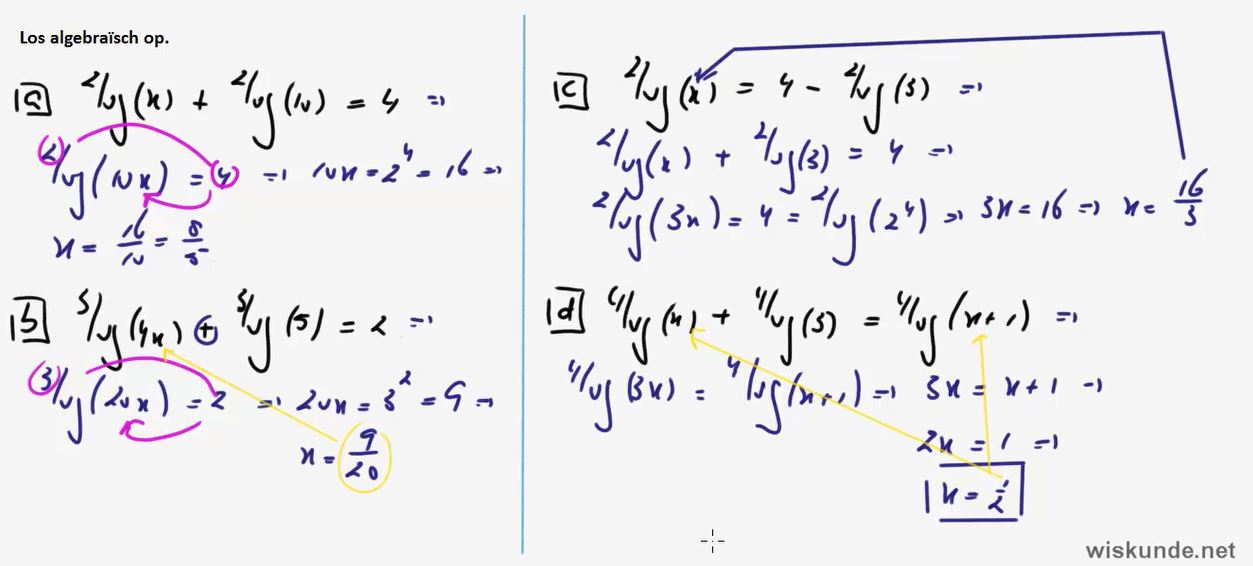 Los algebraïsch op.
a ²log(x) + ²log(10) = 4 ⇒
²log(10x) = (4) ⇒ 10x = 2⁴ = 16 ⇒
x = 16/10 = 8/5
b ³log(4x) + ³log(5) = 2 ⇒
³log(20x) = 2 ⇒ 20x = 3² = 9 ⇒
x = 9/20
c ²log(x) = 4 - ²log(3) ⇒
²log(x) + ²log(3) = 4 ⇒
²log(3x) = 4 = ²log(2⁴) ⇒ 3x = 16 ⇒ x = 16/3
d ⁴log(x) + ⁴log(3) = ⁴log(x+1) ⇒
⁴log(3x) = ⁴log(x+1) ⇒ 3x = x + 1 ⇒
2x = 1 ⇒
x = 1/2
wiskunde.net